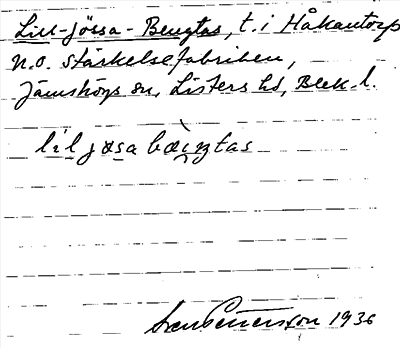 Lill-Jössa-Bengtas, t. i Håkantorp
n.o. stärkelsefabriken,
Jämshögs sn, Listers hd, Blek. l.
lil jɷsa bæiŋtas
Sven Petersson 1936